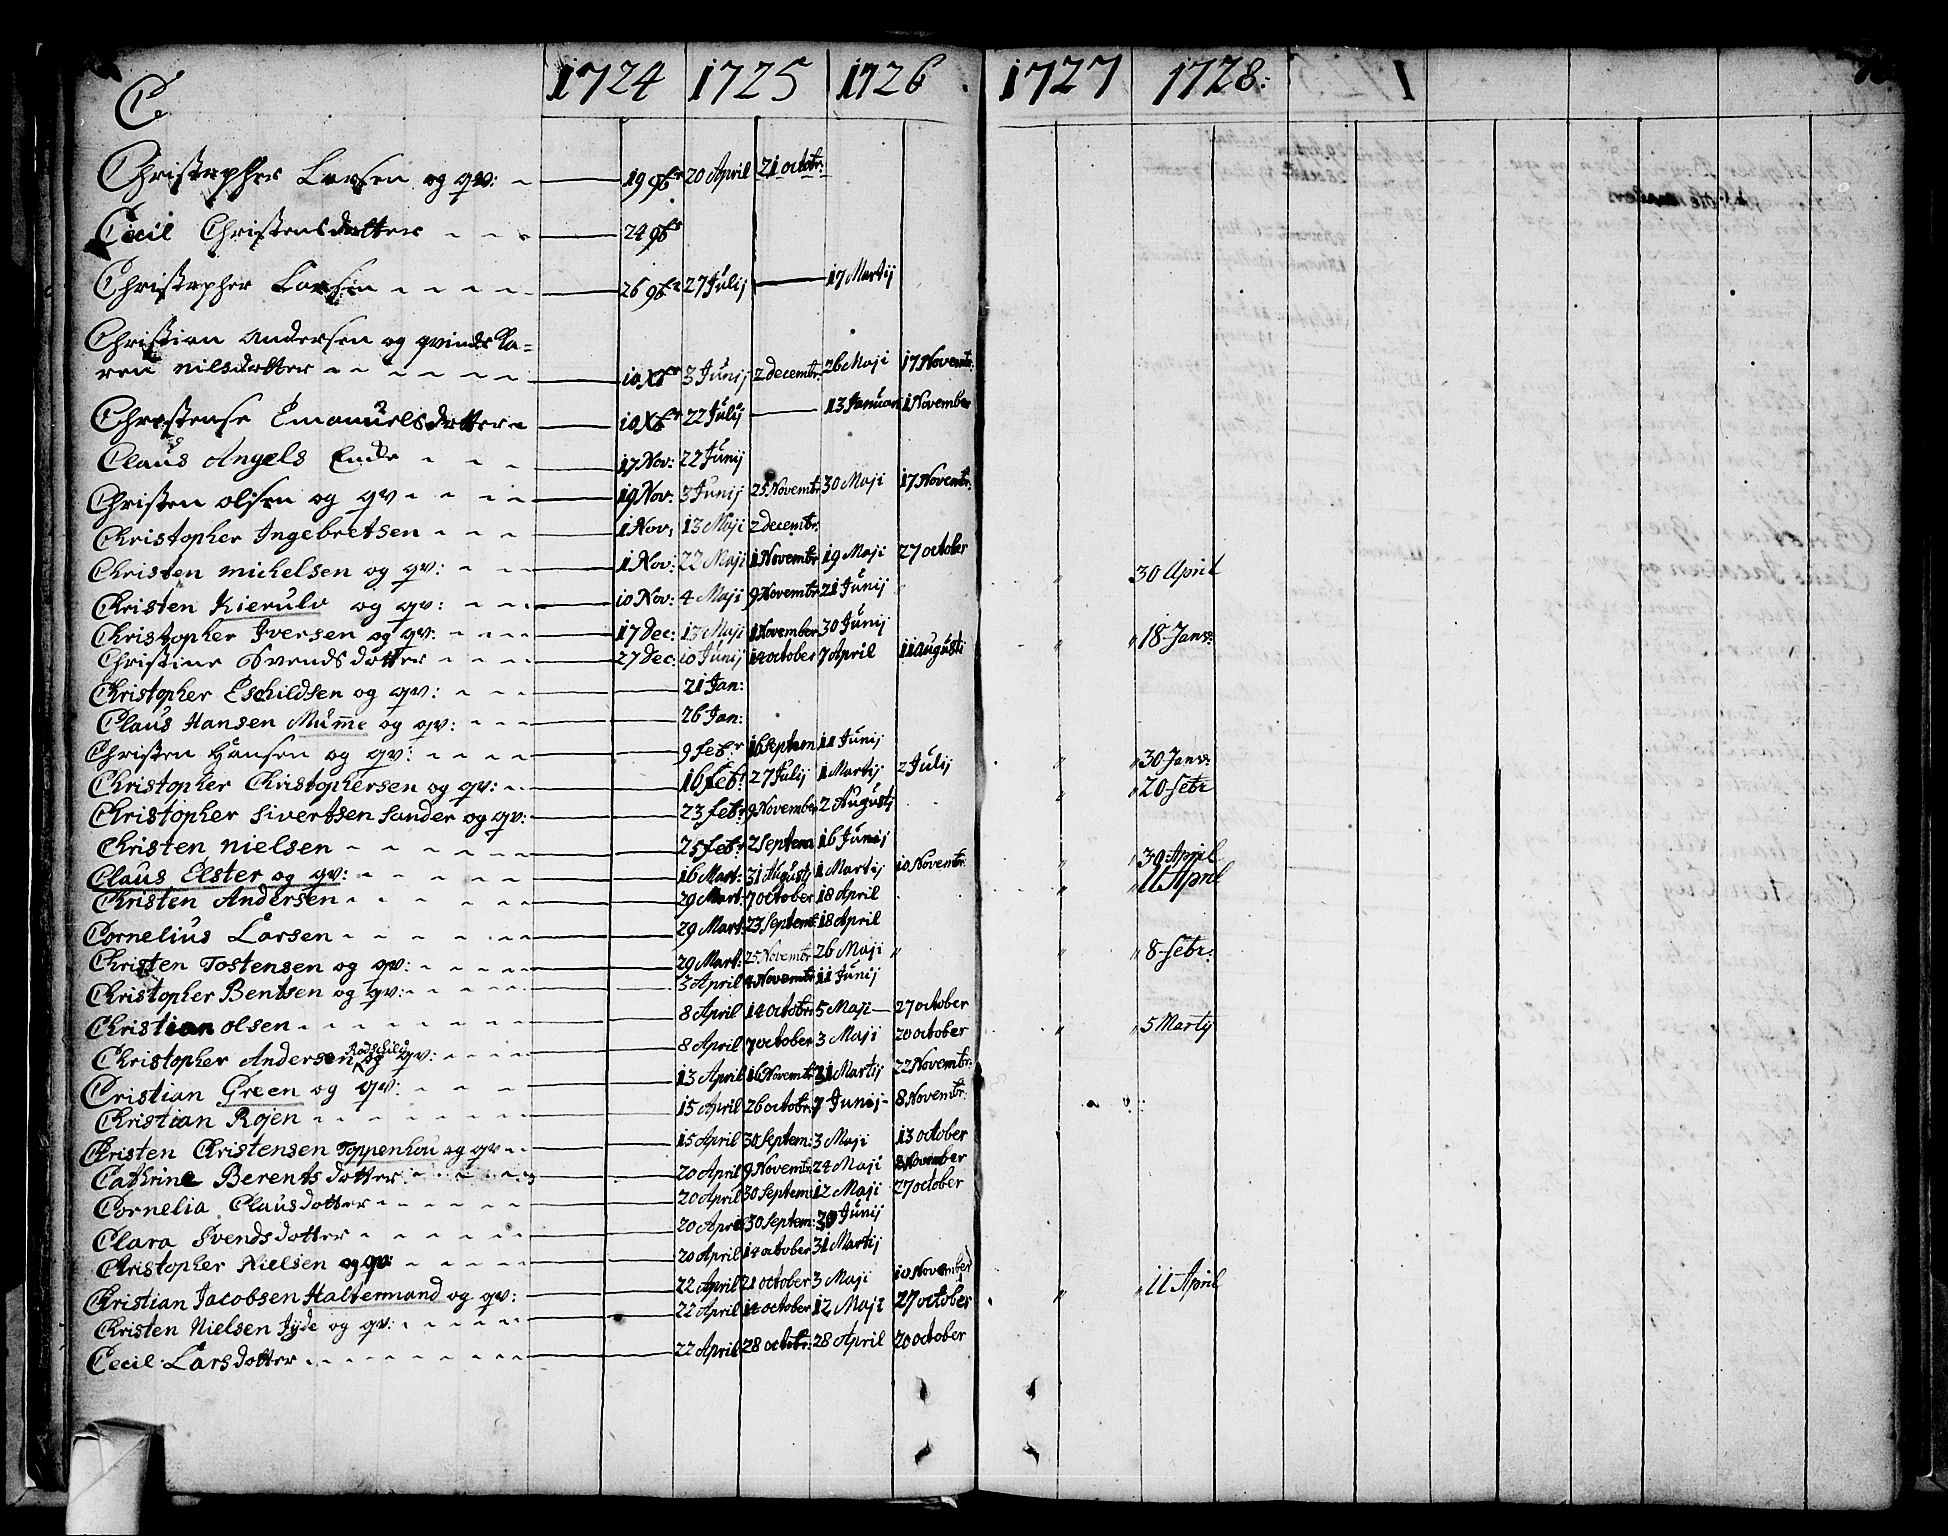 C. 1724 1725 1726 1727 1728:
Christopher Larsen og qv: 19 9br 20 April 21 octobr:
Cecil Christensdotter 24 9br
Christopher Larsen 26 9br 27 Julij 17 Martij
Christian Andersen og qvinde Ka=
ren nilsdotter 10 Xbr 3 Junij 2 decembr: 26 Maji 17 Novembr:
Christense Emanuelsdotter 10 Xbr 22 Julij 13 Januar 1 November
Claus Angels Enke 17 Nov: 22 Junij
Christen olsen og qv 19 Nov: 3 Junij 25 Novembr 30 Maji 17 Novembr:
Christopher Ingebretsen 1 Nov: 13 Maji 2 decembr:
Christen michelsen og qv: 1 Nov: 22 Maji 1 Novembr 19 Maji 27 october " 30 April
Christen Kierulv og qv: 10 Nov: 4 Maji 9 Novembr 21 Junij "
Christopher Iversen og qv: 17 Dec: 13 Maji 1 November 30 Junij " " 18 Janv:
Christine Svends dotter 27 Dec: 10 Junij 14 october 7 April 11 augusti
Christopher Eschildsen og qv: 21 Jan:
Claus Hansen Mumme og qv: 26 Jan:
Christen Hansen og qv: 9 febr 16 Septem 11 Junij " " 30 Janv:
Christopher Christophersen og qv: 16 febr 27 Julij 1 Martij 2 Julij " " 20 Febr
Christopher Sivertsen Sander og qv: 23 febr 9 November 2 Augusti
Christen nielsen 25 febr 2 Septem 16 Junij " " 30 April
Claus Elster og qv: 16 Mart: 31 Augusti 1 Martij 10 Novembr: " " 11 April
Christen Andersen 29 Mart: 7 october 18 April
Cornelius Larsen 29 Mart: 23 Septem: 18 April
Christen Tostensen og qv: 29 Mart: 25 Novembr 26 Maji " " " 8 Febr:
Christopher Bentsen og qv: 3 April 4 Novembr 11 Junij
Christian olsen 8 April 14 octobr: 5 Maji 27 october " " 5 Martij
Christopher Andersen Rodschild og qv: 8 April 7 october 3 Maji 20 october
Cristian Green og qv: 13 April 16 Novembr 11 Martij 22 Novembr:
Christian Rojen 15 April 26 octobr: 7 Junij 8 Novembr:
Christen Christensen Toppenhou og qv 15 April 30 Septem: 3 Maji 13 october
Cathrine Berents dotter 20 April 9 Novembr: 24 Maji November
Cornelia Clausdotter 20 April 30 Septem: 12 Maji 27 october
Clara Svendsdotter 20 April 30 Septem: 30 Junij
Christopher Nielsen og qv: 20 April 14 october 31 Martij
Christian Jacobsen Haltermand og qv: 22 April 21 october 3 Maji 10 November " " 11 April
Christen Nielsen Jyde og qv: 22 April 14 october 12 Maji 27 october
Cecil Larsdotter 22 April 28 octobr: 28 April 20 october